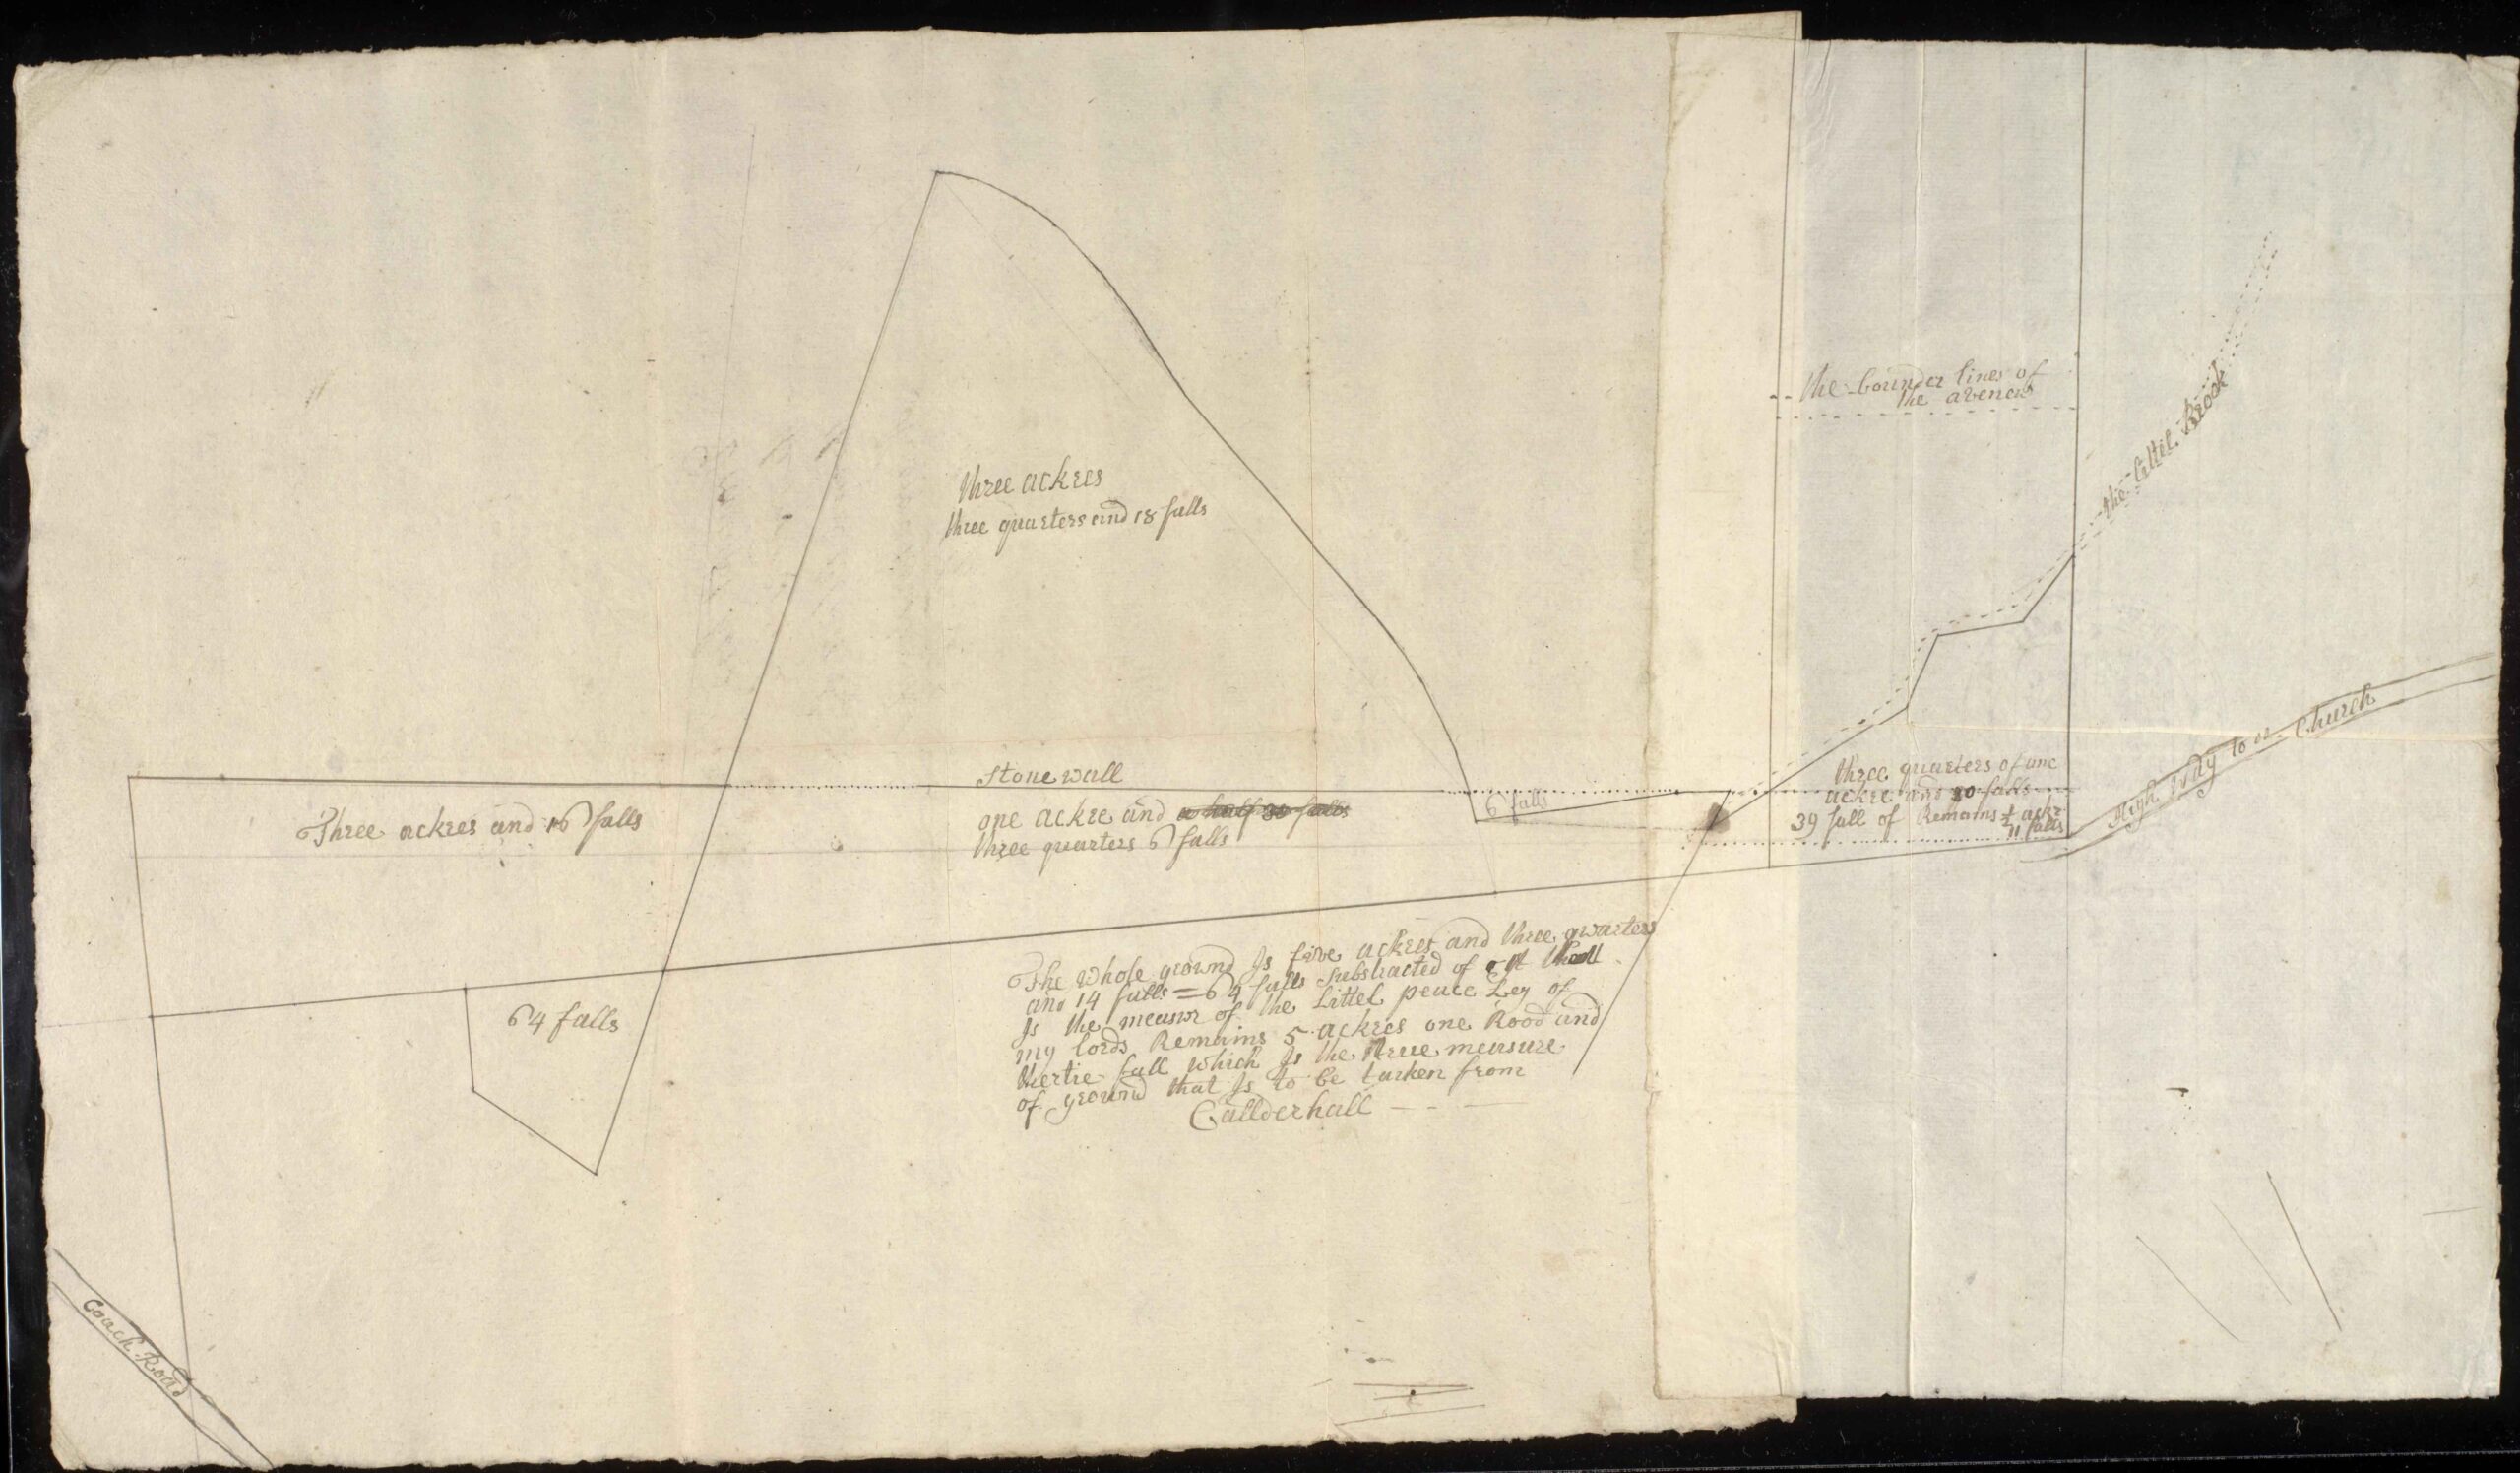 three ackres
three quarters and 18 falls
the bounder lines of
the avenew
the littel Brook
Stone wall
Three ackres and 16 falls
one ackre and a half 30 falls
three quarters 6 falls
6 falls
three quarters of ane
ackre and 10 falls
39 fall of Remains ½ ackr
11 falls
High Way to Church
64 falls
The whole ground Is five ackres and three qwarters
and 14 falls = 64 falls substracted of
Is the measur of the Littel peace Ley of
my lords Remains 5 ackres one Rood and
thertie fall which Is the true measure
of ground that Is to be taxken from
Callderhall
Coach Road